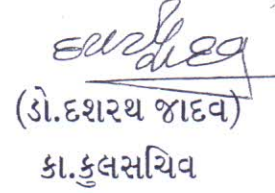 (ડો.દશરથ જાદવ)
કા.કુલસચિવ